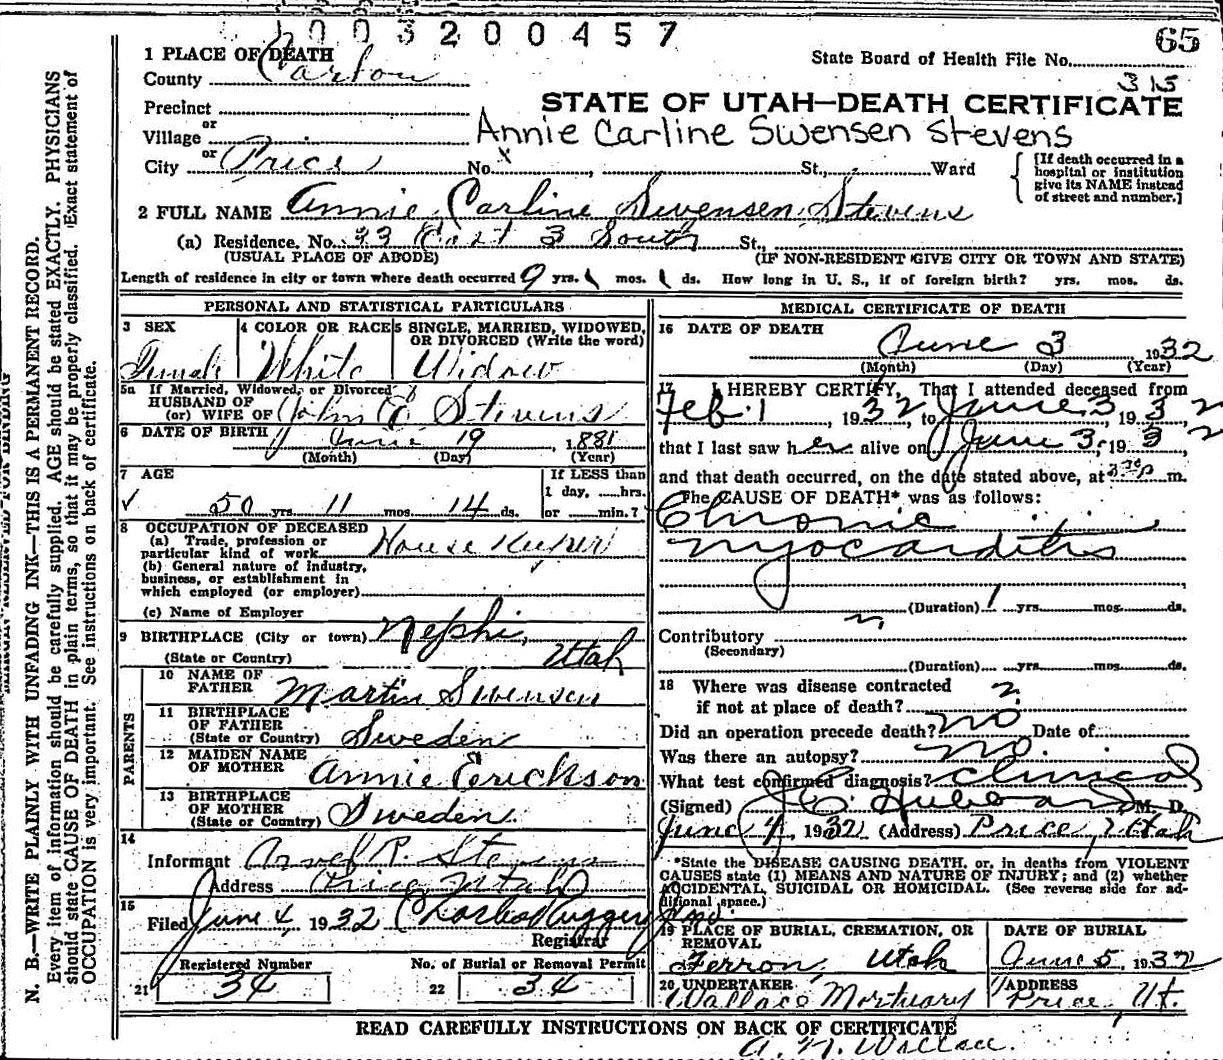 1003200457
65
1 PLACE OF DEATH
State Board of Health File No.
County Carbon
315
Precinct
STATE OF UTAH—DEATH CERTIFICATE
or
Village
Annie Carline Swensen Stevens
or
City Price No. x , St., Ward
[If death occurred in a
hospital or institution
give its NAME instead
of street and number.]
2 FULL NAME Annie Carline Swensen Stevens
(a) Residence, No. 33 East 3 South St.,
(USUAL PLACE OF ABODE) (IF NON-RESIDENT GIVE CITY OR TOWN AND STATE)
Length of residence in city or town where death occurred 9 yrs. mos. ds. How long in U. S., if of foreign birth? yrs. mos. ds.
PERSONAL AND STATISTICAL PARTICULARS
3 SEX 4 COLOR OR RACE 5 SINGLE, MARRIED, WIDOWED,
OR DIVORCED (Write the word)
Female White Widow
5a If Married, Widowed, or Divorced
HUSBAND OF
(or) WIFE OF John E Stevens
6 DATE OF BIRTH June 19 1881
(Month) (Day) (Year)
7 AGE If LESS than
1 day, hrs.
50 yrs. 11 mos. 14 ds. or min.?
8 OCCUPATION OF DECEASED
(a) Trade, profession or
particular kind of work House Keeper
(b) General nature of industry,
business, or establishment in
which employed (or employer)
(c) Name of Employer
9 BIRTHPLACE (City or town) Nephi,
(State or Country) Utah
PARENTS
10 NAME OF
FATHER Martin Swensen
11 BIRTHPLACE
OF FATHER
(State or Country) Sweden
12 MAIDEN NAME
OF MOTHER Annie Eerickson
13 BIRTHPLACE
OF MOTHER
(State or Country) Sweden
14
Informant P. Stevens
Address Price Utah
15
Filed June 4, 1932
Registrar
Registered Number No. of Burial or Removal Permit
21 34 22 34
MEDICAL CERTIFICATE OF DEATH
16 DATE OF DEATH
June 3 1932
(Month) (Day) (Year)
17 I HEREBY CERTIFY, That I attended deceased from
Feb. 1, 1932, to June 3, 1932
that I last saw her alive on June 3, 1932,
and that death occurred, on the date stated above, at 3:30 p m.
The CAUSE OF DEATH* was as follows:
Chronic
myocarditis
(Duration) 1 yrs. mos. ds.
Contributory
(Secondary)
(Duration) yrs. mos. ds.
18 Where was disease contracted
if not at place of death?
Did an operation precede death? no Date of
Was there an autopsy? no.
What test confirmed diagnosis? Clinical
(Signed) Hubbard M. D.
June 4, 1932 (Address) Price, Utah
*State the DISEASE CAUSING DEATH, or, in deaths from VIOLENT
CAUSES state (1) MEANS AND NATURE OF INJURY; and (2) whether
ACCIDENTAL, SUICIDAL OR HOMICIDAL. (See reverse side for ad-
ditional space.)
19 PLACE OF BURIAL, CREMATION, OR
REMOVAL
Ferron, Utah
DATE OF BURIAL
June 5, 1932
20 UNDERTAKER
Wallace Mortuary
ADDRESS
Price, Ut.
READ CAREFULLY INSTRUCTIONS ON BACK OF CERTIFICATE
A. N. Wallace.
N. B.—WRITE PLAINLY WITH UNFADING INK—THIS IS A PERMANENT RECORD.
Every item of information should be carefully supplied. AGE should be stated EXACTLY. PHYSICIANS
should state CAUSE OF DEATH in plain terms, so that it may be properly classified. Exact statement of
OCCUPATION is very important. See instructions on back of certificate.